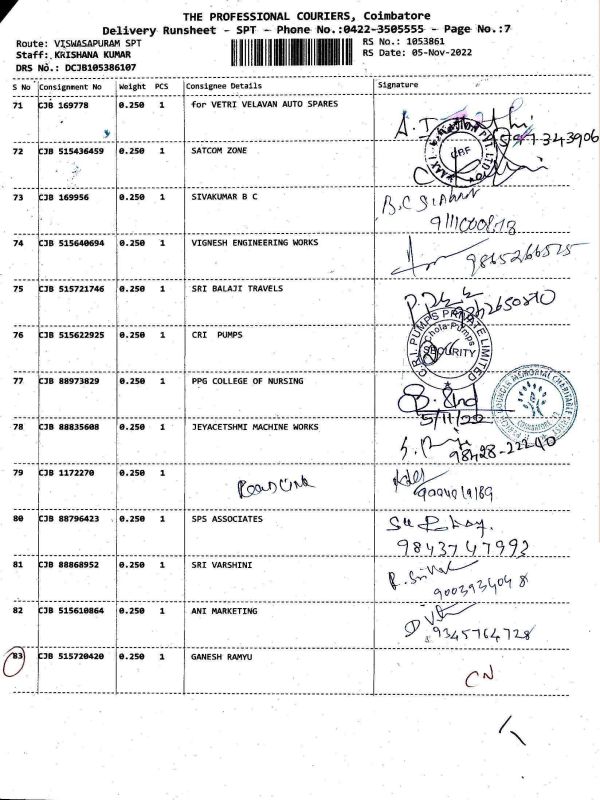 THE PROFESSIONAL COURIERS, Coimbatore
Delivery Runsheet - SPT - Phone No.:0422-3505555 - Page No.:7
Route: VISWASAPURAM SPT
Staff: KRISHANA KUMAR
DRS No.: DCJB105386107
RS No.: 1053861
RS Date: 05-Nov-2022
S No Consignment No Weight PCS Consignee Details Signature
71 CJB 169778 0.250 1 for VETRI VELAVAN AUTO SPARES
72 CJB 515436459 0.250 1 SATCOM ZONE
CBF
73 CJB 169956 0.250 1 SIVAKUMAR B C
74 CJB 515640694 0.250 1 VIGNESH ENGINEERING WORKS
9865266525
75 CJB 515721746 0.250 1 SRI BALAJI TRAVELS
76 CJB 515622925 0.250 1 CRI PUMPS
C.R.I. PUMPS PRIVATE LIMITED
Chola-Pumps
SECURITY
77 CJB 88973829 0.250 1 PPG COLLEGE OF NURSING
5/11/22
MEMORIAL CHARITABLE TRUST
COIMBATORE
78 CJB 88835608 0.250 1 JEYACETSHMI MACHINE WORKS
98428-22240
79 CJB 1172270 0.250 1
80 CJB 88796423 0.250 1 SPS ASSOCIATES
9843747992
81 CJB 88868952 0.250 1 SRI VARSHINI
9003934048
82 CJB 515610864 0.250 1 ANI MARKETING
9345764728
83 CJB 515720420 0.250 1 GANESH RAMYU
CN